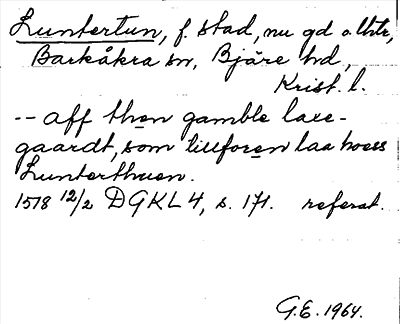 Luntertun, f. stad, nu gd o. lht,
Barkåkra sn, Bjäre hd,
Krist. l.
-- aff then gamble laxe-
gaardt, som tillforen laa hoess
Lunterthuen.
1578 12/2 DGKL 4, s. 171. referat.
G.E. 1964.